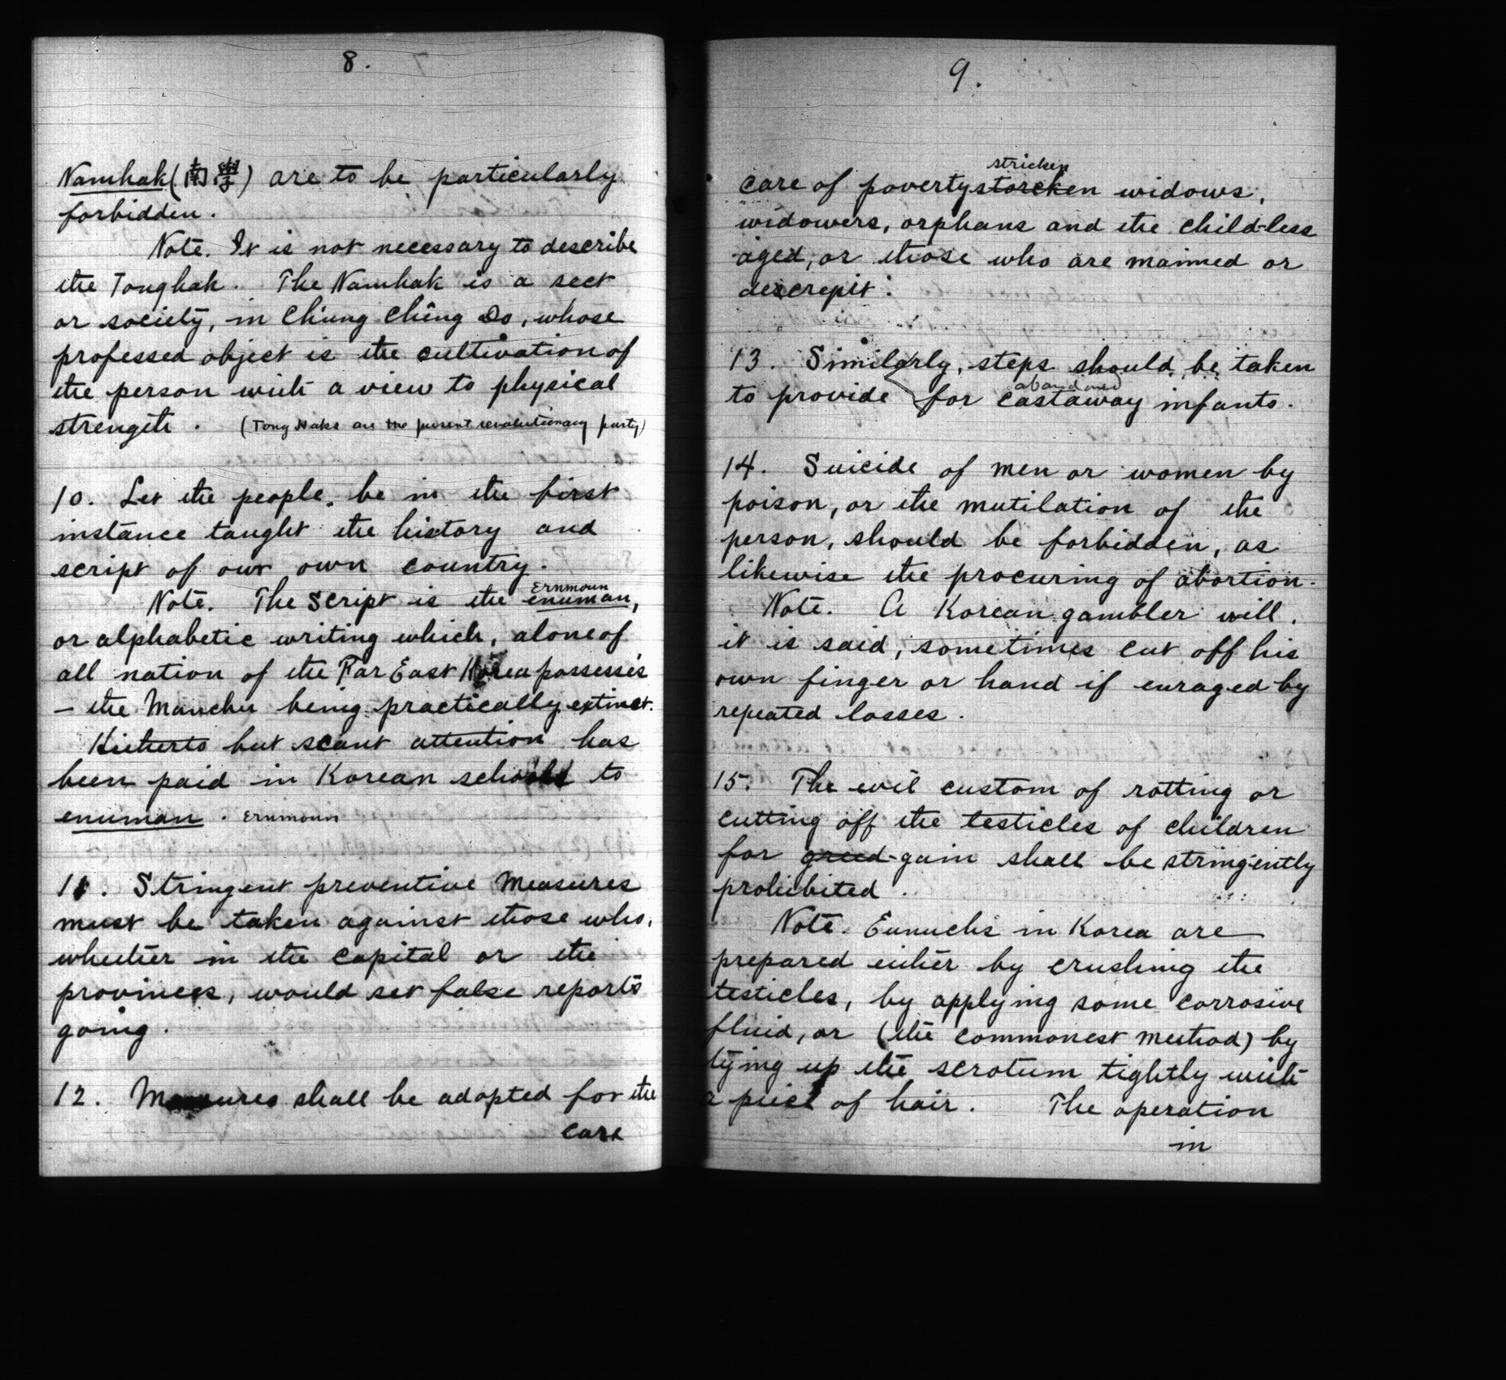 8.
Namhak (南學) are to be particularly
forbidden.
Note. It is not necessary to describe
the Tonghak. The Namhak is a sect
or society, in Ch'ung Ch'ing Do, whose
professed object is the cultivation of
the person with a view to physical
strength. (Tong Haks are the present revolutionary party)
10. Let the people, be in the first
instance taught the history and
script of our own country.
Ernmoun
Note. The Script is the enuman,
or alphabetic writing which, alone of
all nation of the Far East Korea possesses
— the Manchu being practically extinct.
Hitherto but scant attention has
been paid in Korean schools to
enuman. Ernmoun
11. Stringent preventive measures
must be taken against those who,
whether in the capital or the
provinces, would set false reports
going.
12. Measures shall be adopted for the
care
9.
stricken
care of poverty storcken widows,
widowers, orphans and the child-less
aged, or those who are maimed or
decrepit.
13. Similarly, steps should be taken
abandoned
to provide for castaway infants.
14. Suicide of men or women by
poison, or the mutilation of the
person, should be forbidden, as
likewise the procuring of abortion.
Note. A Korean gambler will,
it is said, sometimes cut off his
own finger or hand if enraged by
repeated losses.
15. The evil custom of rotting or
cutting off the testicles of children
for greed gain shall be stringently
prohibited.
Note. Eunuchs in Korea are
prepared either by crushing the
testicles, by applying some corrosive
fluid, or (the commonest method) by
tying up the scrotum tightly with
a piece of hair. The operation
in